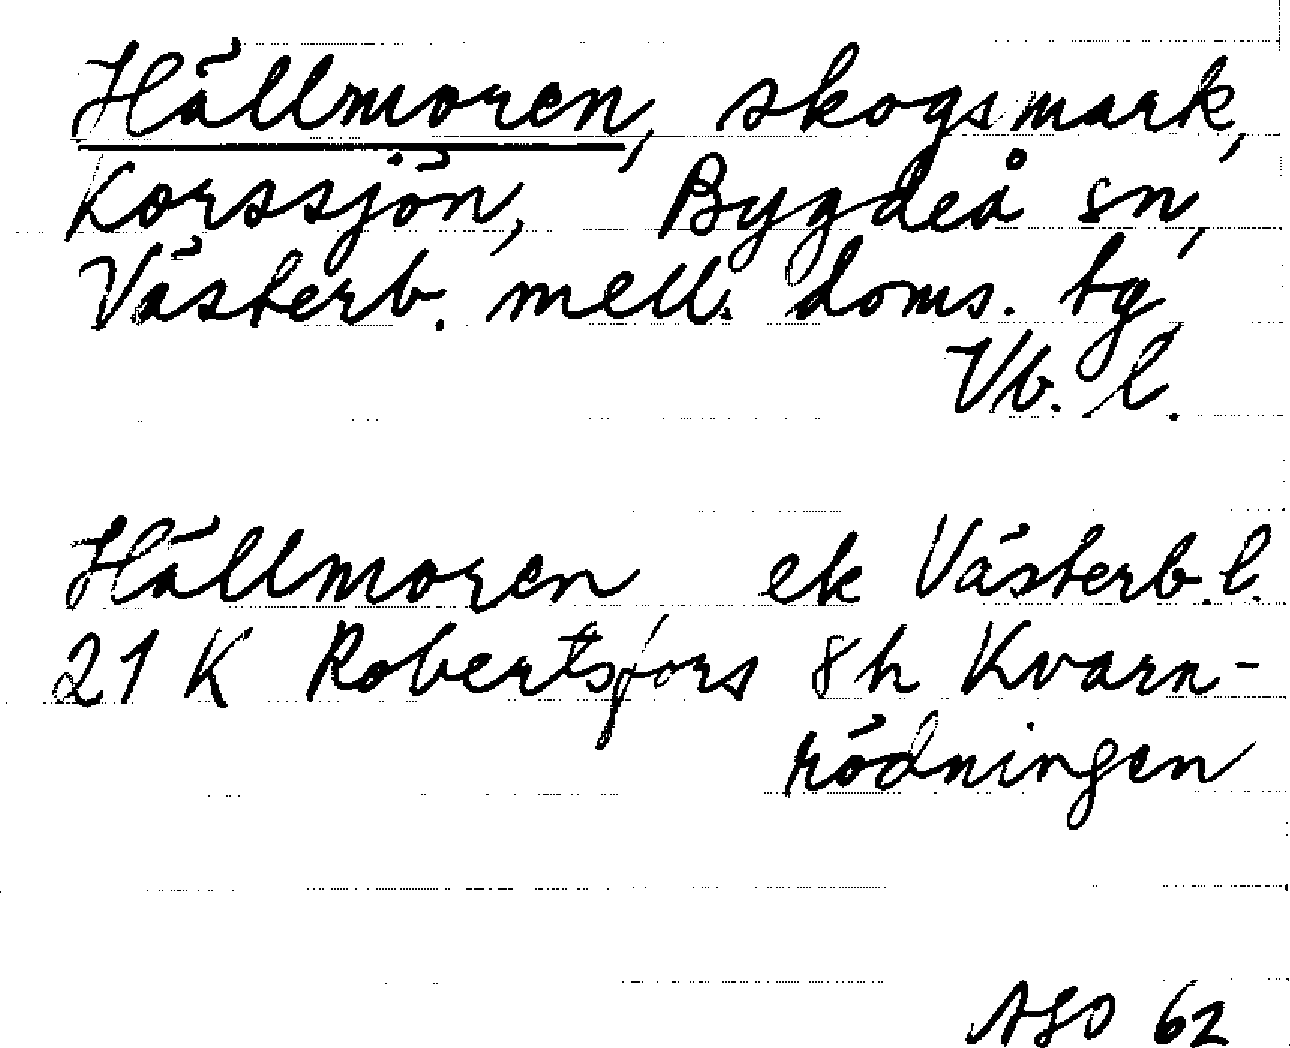 Hällmoren, skogsmark,
Korssjön, Bygdeå sn,
Västerb. mell. doms. tg
Vb. l.
Hällmoren, ek Västerb. l.
21 K Robertsfors 8h Kvarn-
rödningen
62